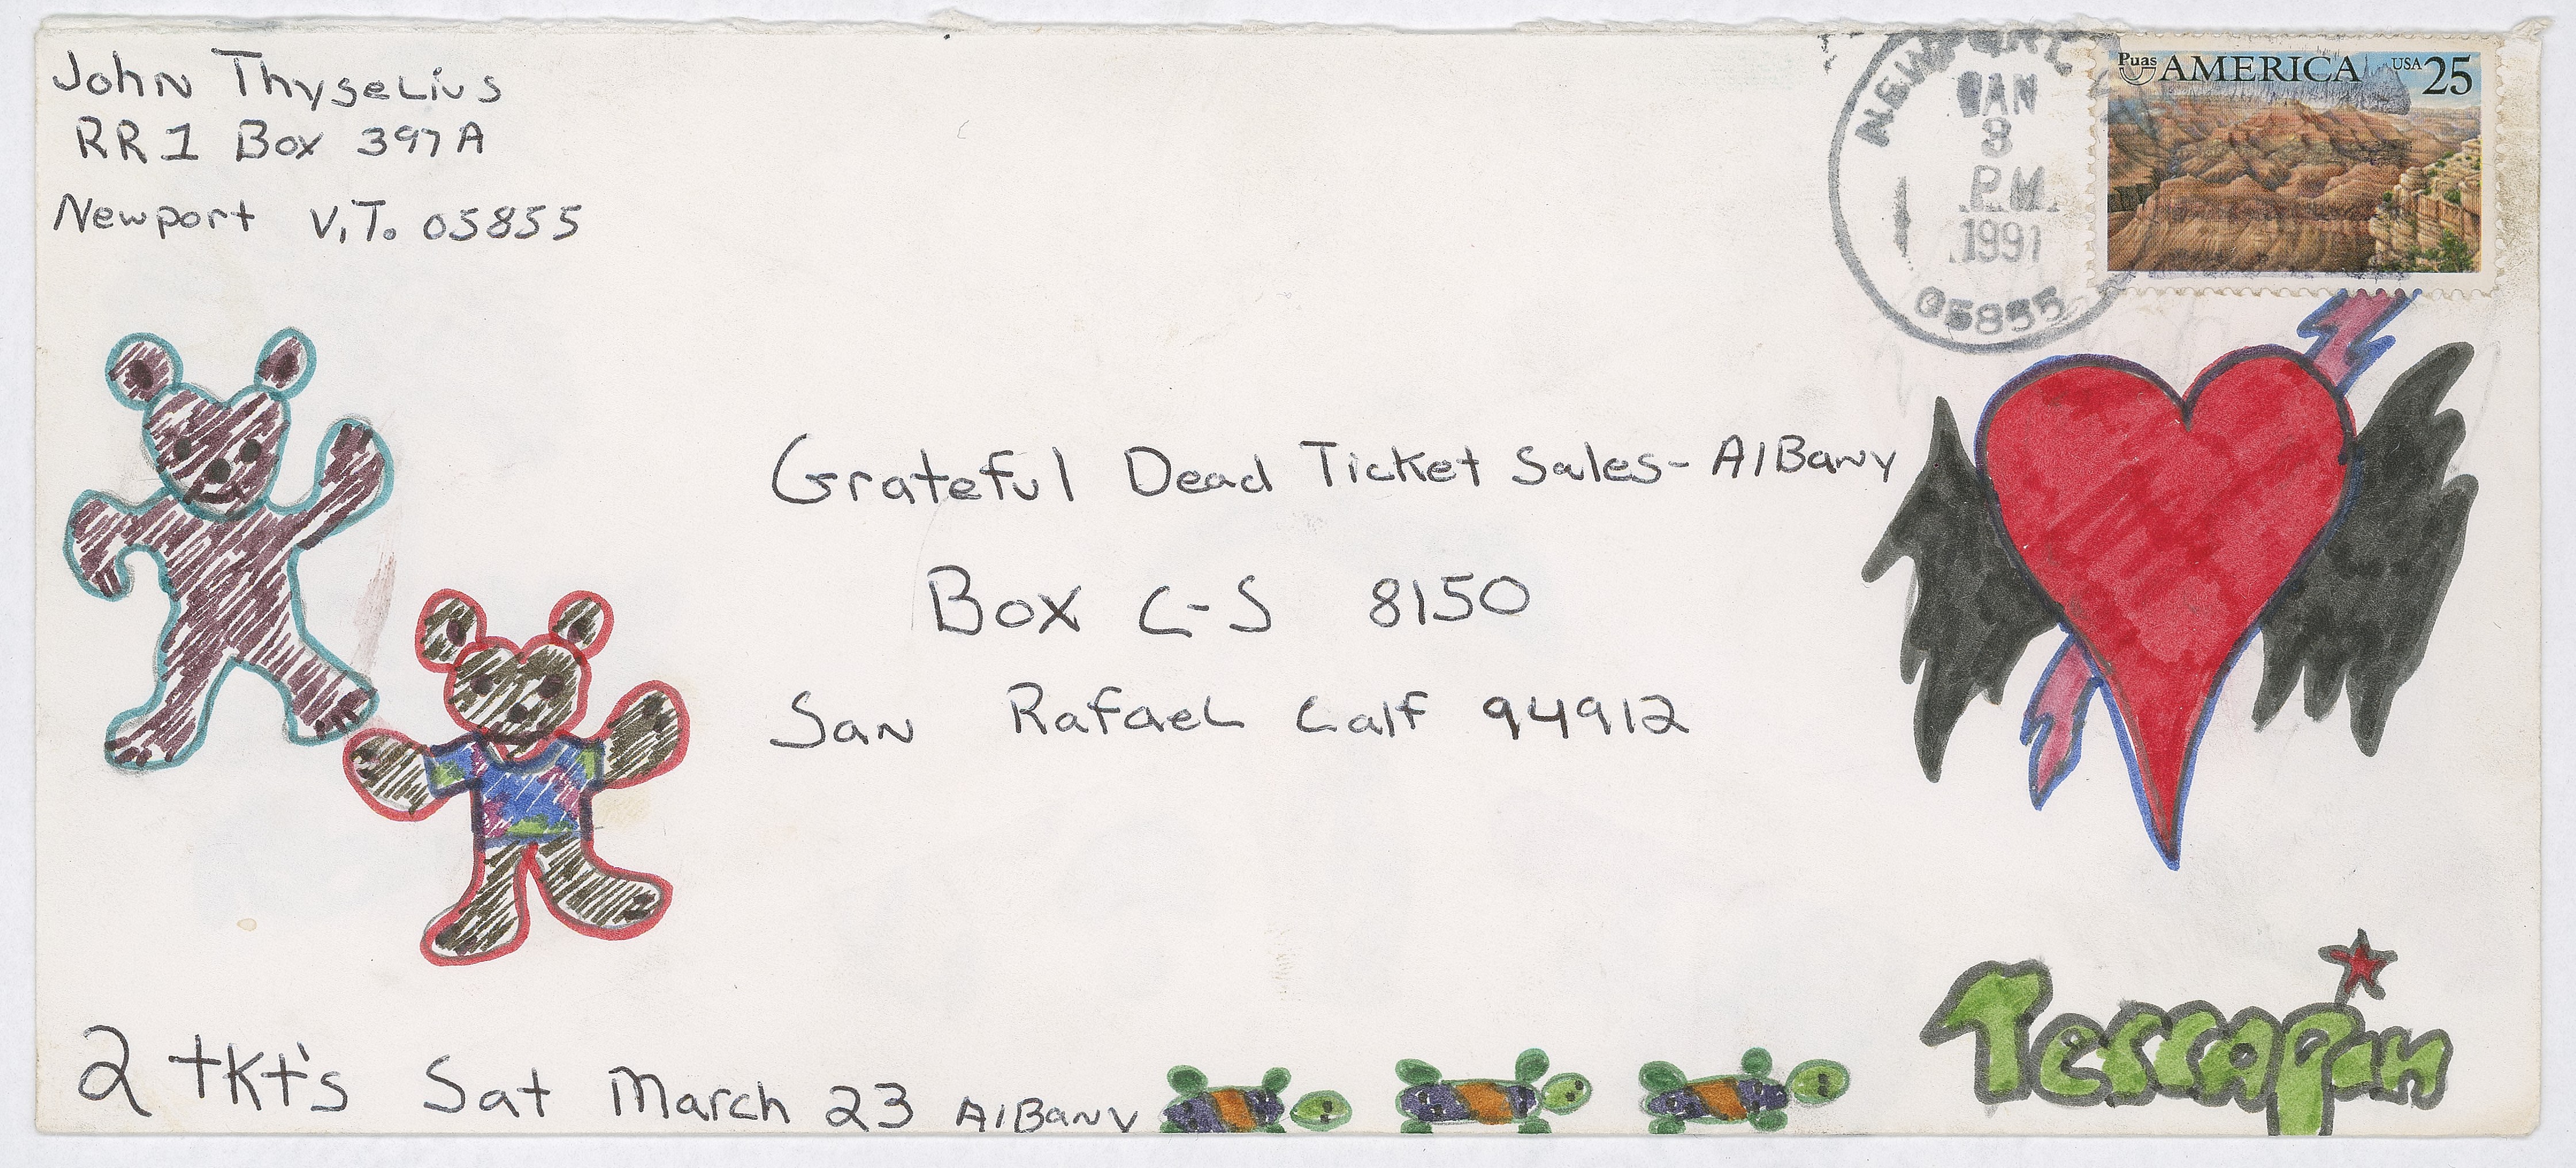 John Thyselius
RR1 Box 397A
Newport V.T. 05855
NEWPORT
JAN
8
P.M.
1991
05855
Puas AMERICA USA 25
Grateful Dead Ticket Sales- AlBany
Box C-S 8150
San Rafael Calf 94912
2 tkt's Sat March 23 AlBany
Terrapin